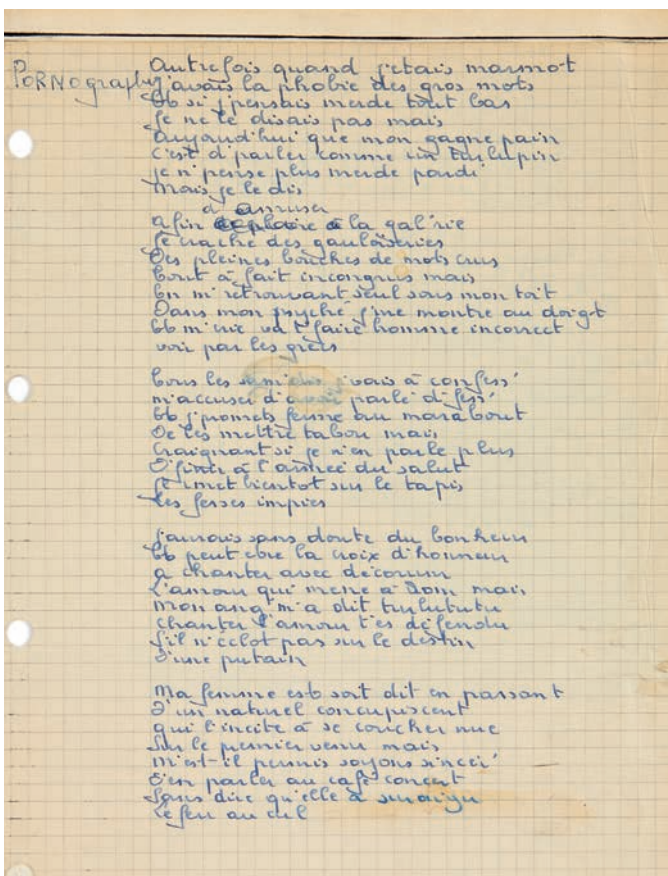 PORNographe
Autrefois quand j'étais marmot
J'avais la phobie des gros mots
Et si j'pensais merde tout bas
Je ne le disais pas mais
Aujourd'hui que mon gagne pain
C'est d'parler comme un turlupin
Je n'pense plus merde pardi
Mais je le dis
d'amuser
Afin la gal'rie
Je crache des gauloiseries
Des pleines bouches de mots crus
Tout à fait incongrus mais
En m'retrouvant seul sous mon toit
Dans mon psyché j'me montre au doigt
Et m'crie va t'faire homme incorrect
voir par les grecs
Tous les sam'dis j'vais à confess'
m'accuser d'avoir parlé d'fess'
Et j'promets ferme au marabout
De les mettre tabou mais
Craignant si je n'en parle plus
D'finir à l'armée du salut
Je r'mets bientot sur le tapis
Les fesses impies
J'aurais sans doute du bonheur
Et peut etre la croix d'honneur
A chanter avec décorum
L'amour qui mene à Rom mais
Mon ang' m'a dit turlututu
Chanter l'amour t'es défendu
S'il n'éclot pas sur le destin
D'une putain
Ma femme est soit dit en passant
D'un naturel concupiscent
Qui l'incite à se coucher nue
Sur le premier venu mais
M'est-il permis soyons sincèr'
D'en parler au café concert
Sans dire qu'elle a suraigu
Le feu au cul